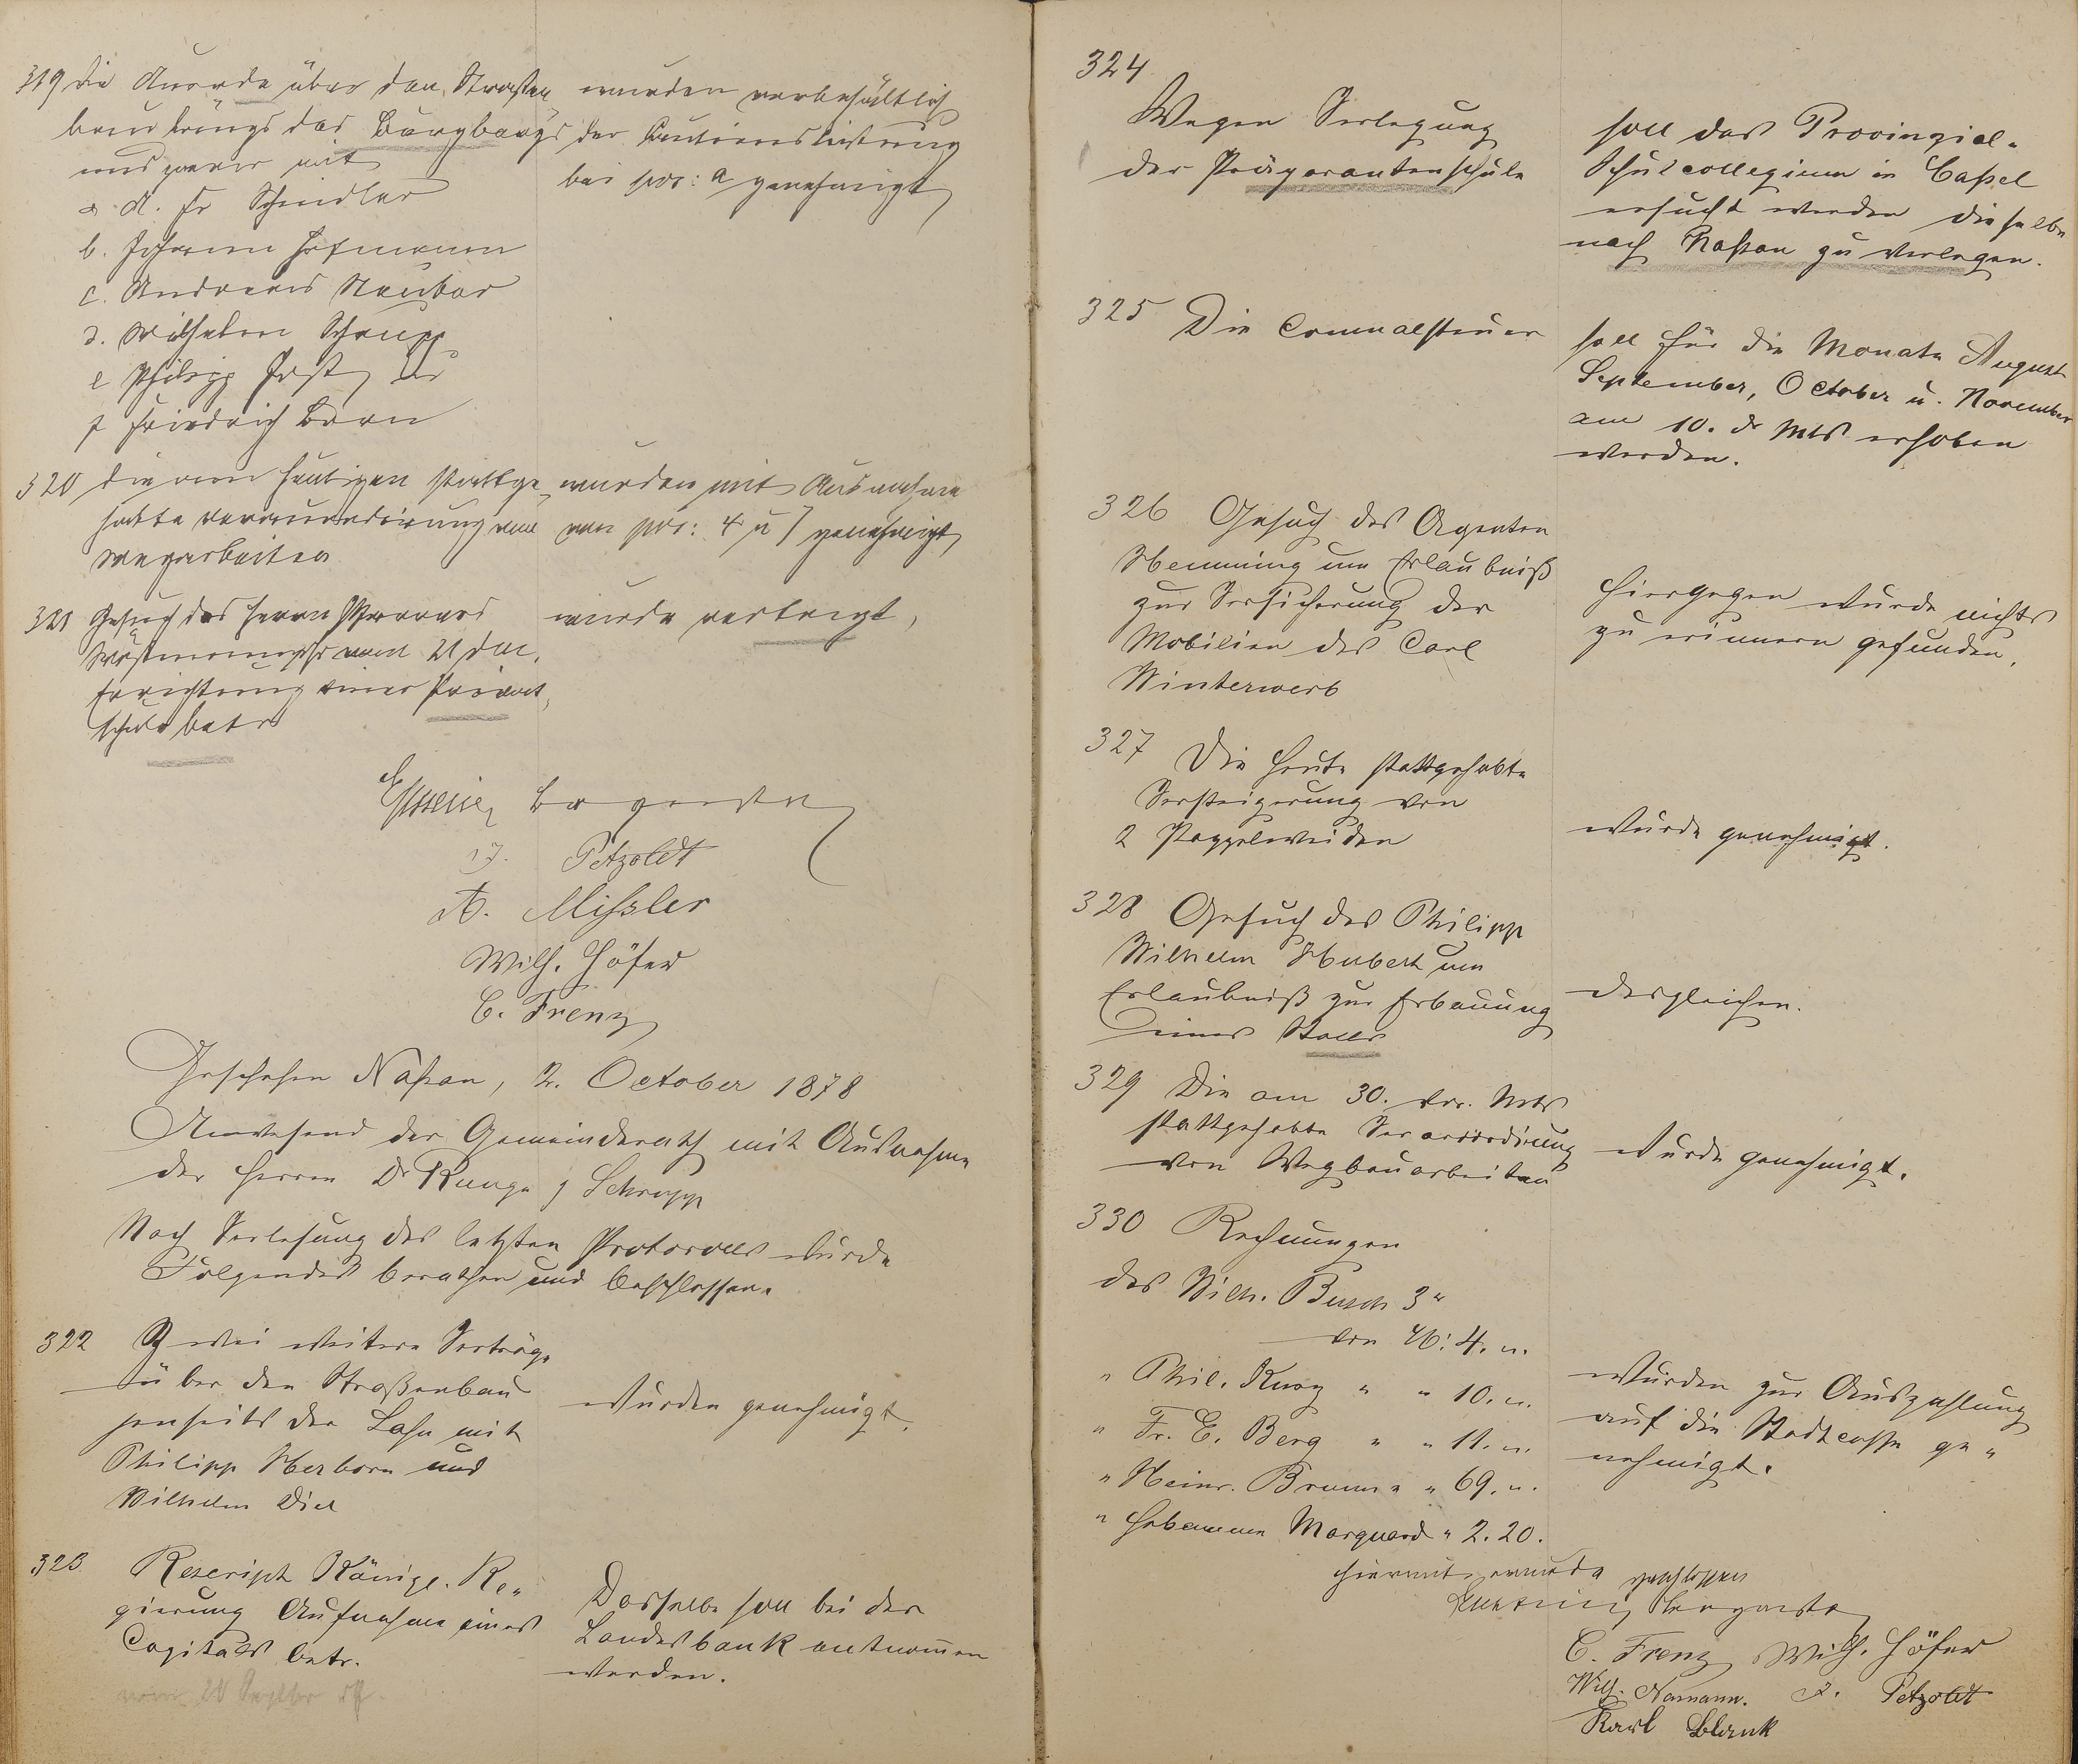 319 die Accorde über den Strassen
bau längs des Burgbergs
und zwar mit
a. A. Fr Schindler
b. Johann Hofmann
c. Andreas Neubar
d. Wilhelm Schrupp
e Philipp Jost
f Friedrich Born
wurden vorbehältlich
der Cautionsleistung
bei pos: a genehmigt
320 die am heutigen stattge-
habte Veraccordirung von
Wegarbeiten
wurden mit Ausnahme
von pos: 4 u 7 genehmigt
321 Gesuch des Herrn Pfarrers
vom 21 d m,
Errichtung einer Privat,
schule betr
wurde vertagt,
Petzoldt
A. Mißler
Wilh. Höfer
C. Frenz
Geschehen Naßau, 2. October 1878
Anwesend der Gemeinderath mit Ausnahme
der Herren Dr Runge, Schrupp
Nach Verlesung des letzten Protocolls wurde
Folgendes berathen und beschlossen.
322 Zwei weitere Verträge
über den Straßenbau
jenseits der Lahn mit
Philipp Herborn und
Wilhelm Diel
wurden genehmigt.
323 Rescript Königl. Re„
gierung Aufnahme eines
Capitals betr.
vom 20 Septbr
Dasselbe soll bei der
Landesbank entnom̄en
werden.
324
Wegen Verlegung
der Präparantenschule
soll das Provinzial„
Schulcollegium in Caßel
ersucht werden dieselbe
nach Naßau zu verlegen.
325 Die Communalsteuer
soll für die Monate August
September, October u. November
am 10. d Mts erhoben
werden.
326 Gesuch des Agenten
Hemming um Erlaubniß
zur Versicherung der
Mobilien des Carl
Winterwerb
Hiergegen wurde nichts
zu erinnern gefunden.
327 Die heute stattgehabte
Versteigerung von
2 Pappelweiden
wurde genehmigt.
328 Gesuch des Philipp
Wilhelm Hubert um
Erlaubniß zur Erbauung
eines Stalls
desgleichen.
329 Die am 30. vor. Mts
stattgehabte Veraccordirung
von Wegbauarbeiten
wurde genehmigt.
330 Rechnungen
des Wilh. Busch 3r
von M: 4. „.
„ Phil. Kurz „ „ 10. „.
„ Fr. E. Berg „ „ 11. „.
„ Heinr. Bruns „ 69. „.
„ Hebamme Marquard „ 2.20.
wurden zur Auszahlung
auf die Stadtcasse ge„
nehmigt.
Hiermit wurde geschlossen
C. Frenz Wilh. Höfer
Wilh. Namann. Petzoldt
Karl Blank